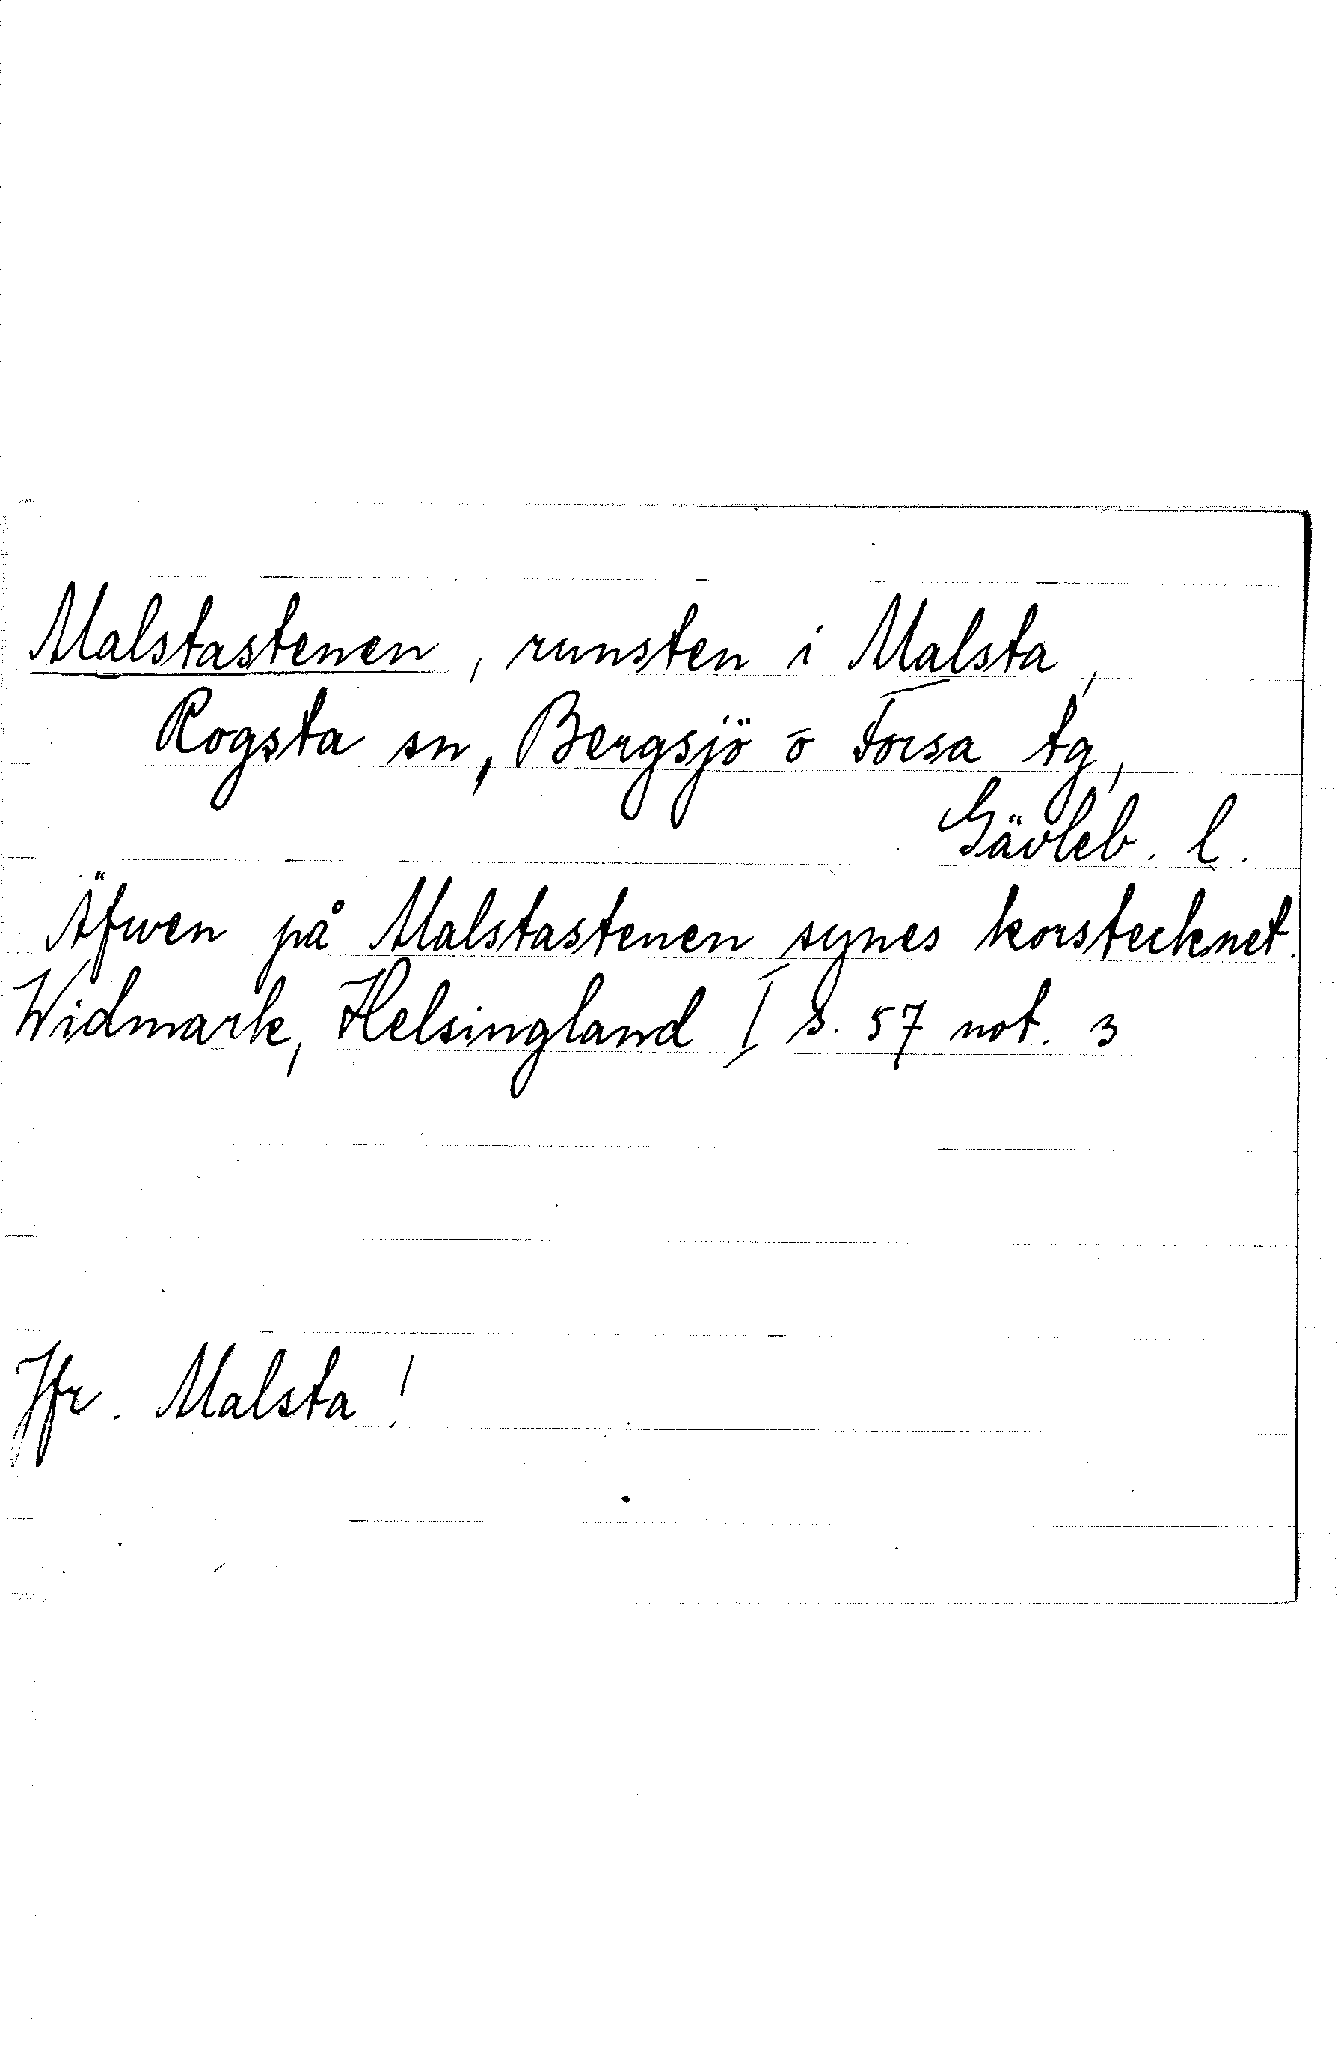 Malstastenen, runsten i Malsta,
Rogsta sn, Bergsjö o Forsa tg,
Gävleb. l.
Äfwen på Malstastenen synes korstecknet.
Widmark, Helsingland I s. 57 not. 3
Jfr. Malsta!